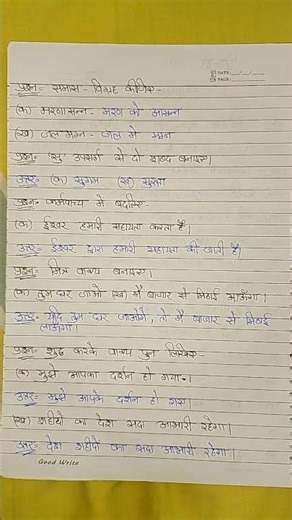 DATE: __/__/__
PAGE:
प्रश्न:- समास - विग्रह कीजिए-
(क) मरणासन्न - मरण को आसन्न
(ख) जलमग्न - जल में मग्न
प्रश्न:- 'सु' उपसर्ग से दो शब्द बनाइए।
उत्तर:- (क) सुगम (ख)
प्रश्न:- कर्मवाच्य में बदलिए-
(क) ईश्वर हमारी सहायता करता है।
उत्तर:- ईश्वर द्वारा हमारी सहायता की जाती है।
प्रश्न:- मिश्र वाक्य बनाइए।
(क) तुम घर जाओ (ख) मैं बाजार से मिठाई लाऊँगा।
उत्तर:- यदि तुम घर जाओगे, तो मैं बाजार से मिठाई
लाऊँगा।
प्रश्न:- शुद्ध करके वाक्य पुनः लिखिए-
(क) मुझे आपका दर्शन हो गया।
उत्तर:- मुझे आपके दर्शन हो गए।
(ख) शहीदों का देश सदा आभारी रहेगा।
उत्तर:- देश शहीदों का सदा आभारी रहेगा।
Good Write